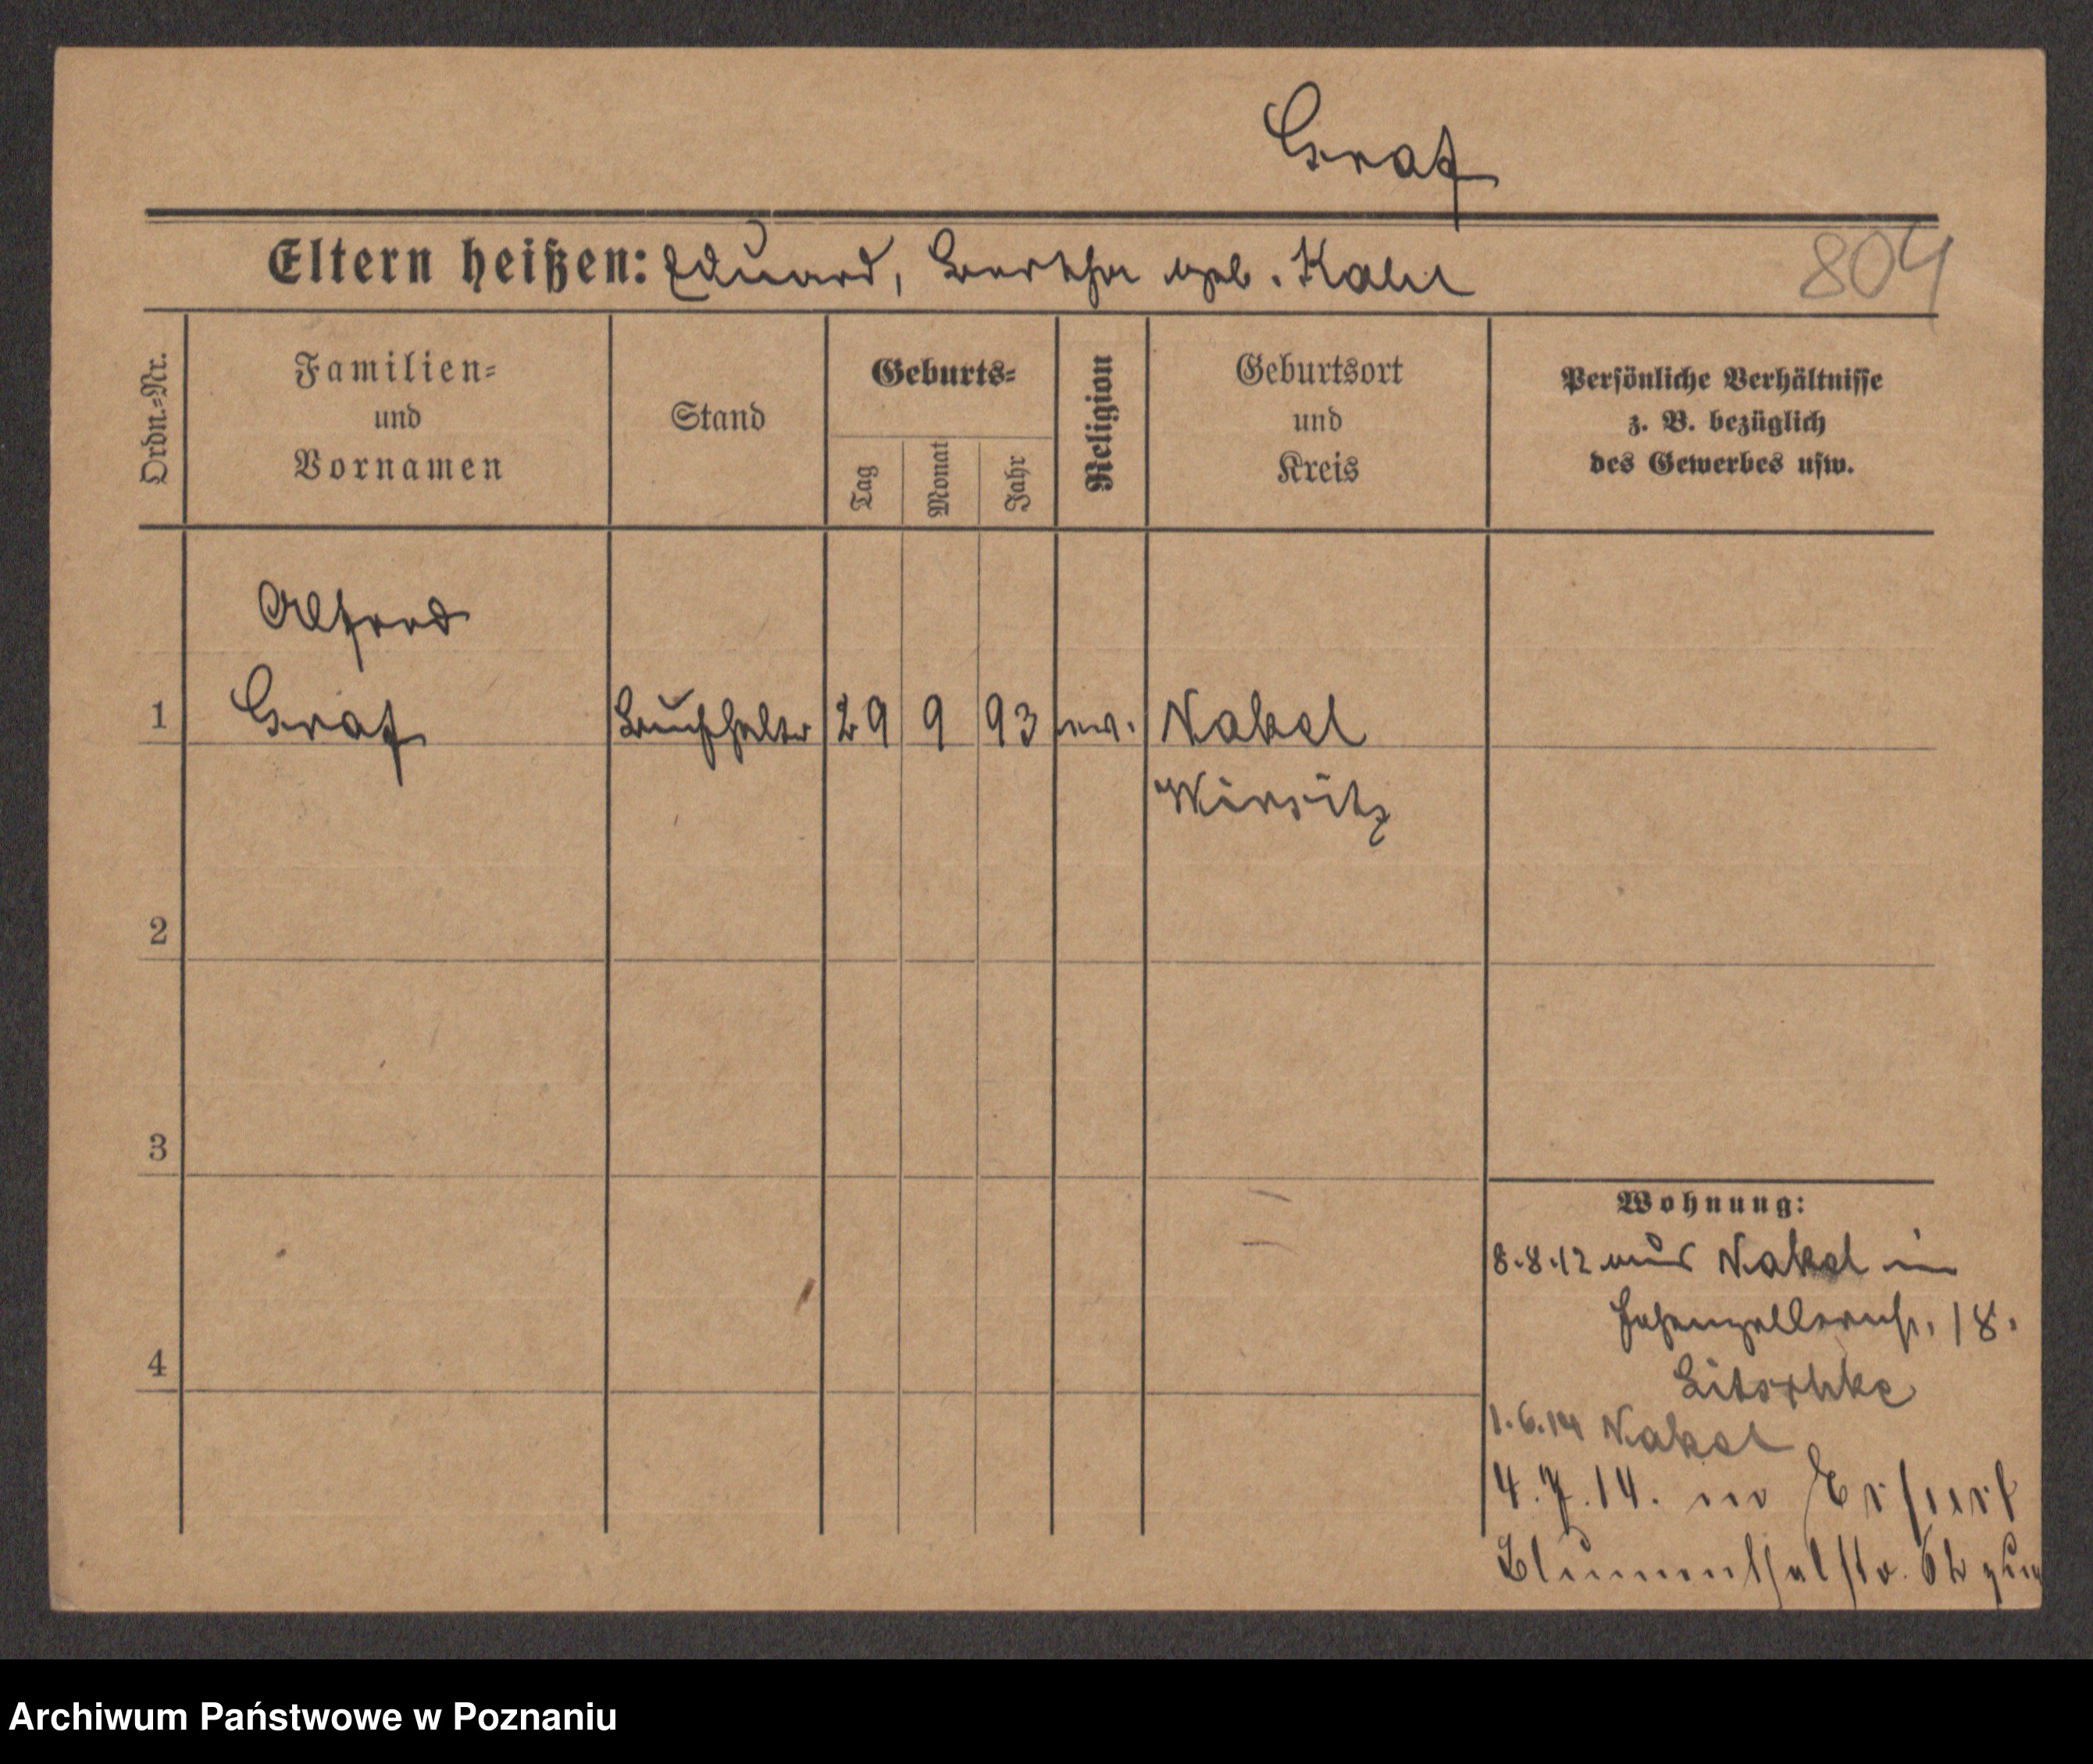 Graf
Eltern heißen: Eduard, Bertha geb. Kahl
804
Ordn.-Nr.
Familien-
und
Vornamen
Stand
Geburts-
Tag
Monat
Jahr
Religion
Geburtsort
und
Kreis
Persönliche Verhältnisse
z. B. bezüglich
des Gewerbes usw.
Alfred
1 Graf Buchhalter 29 9 93 ev. Nakel
Wirsitz
2
3
4
Wohnung:
8.8.12 aus Nakel in
Hohenzollernstr. 18.
1.6.14 Nakel
4.7.14. in Erfurt
Blumenthalstr.
Archiwum Państwowe w Poznaniu